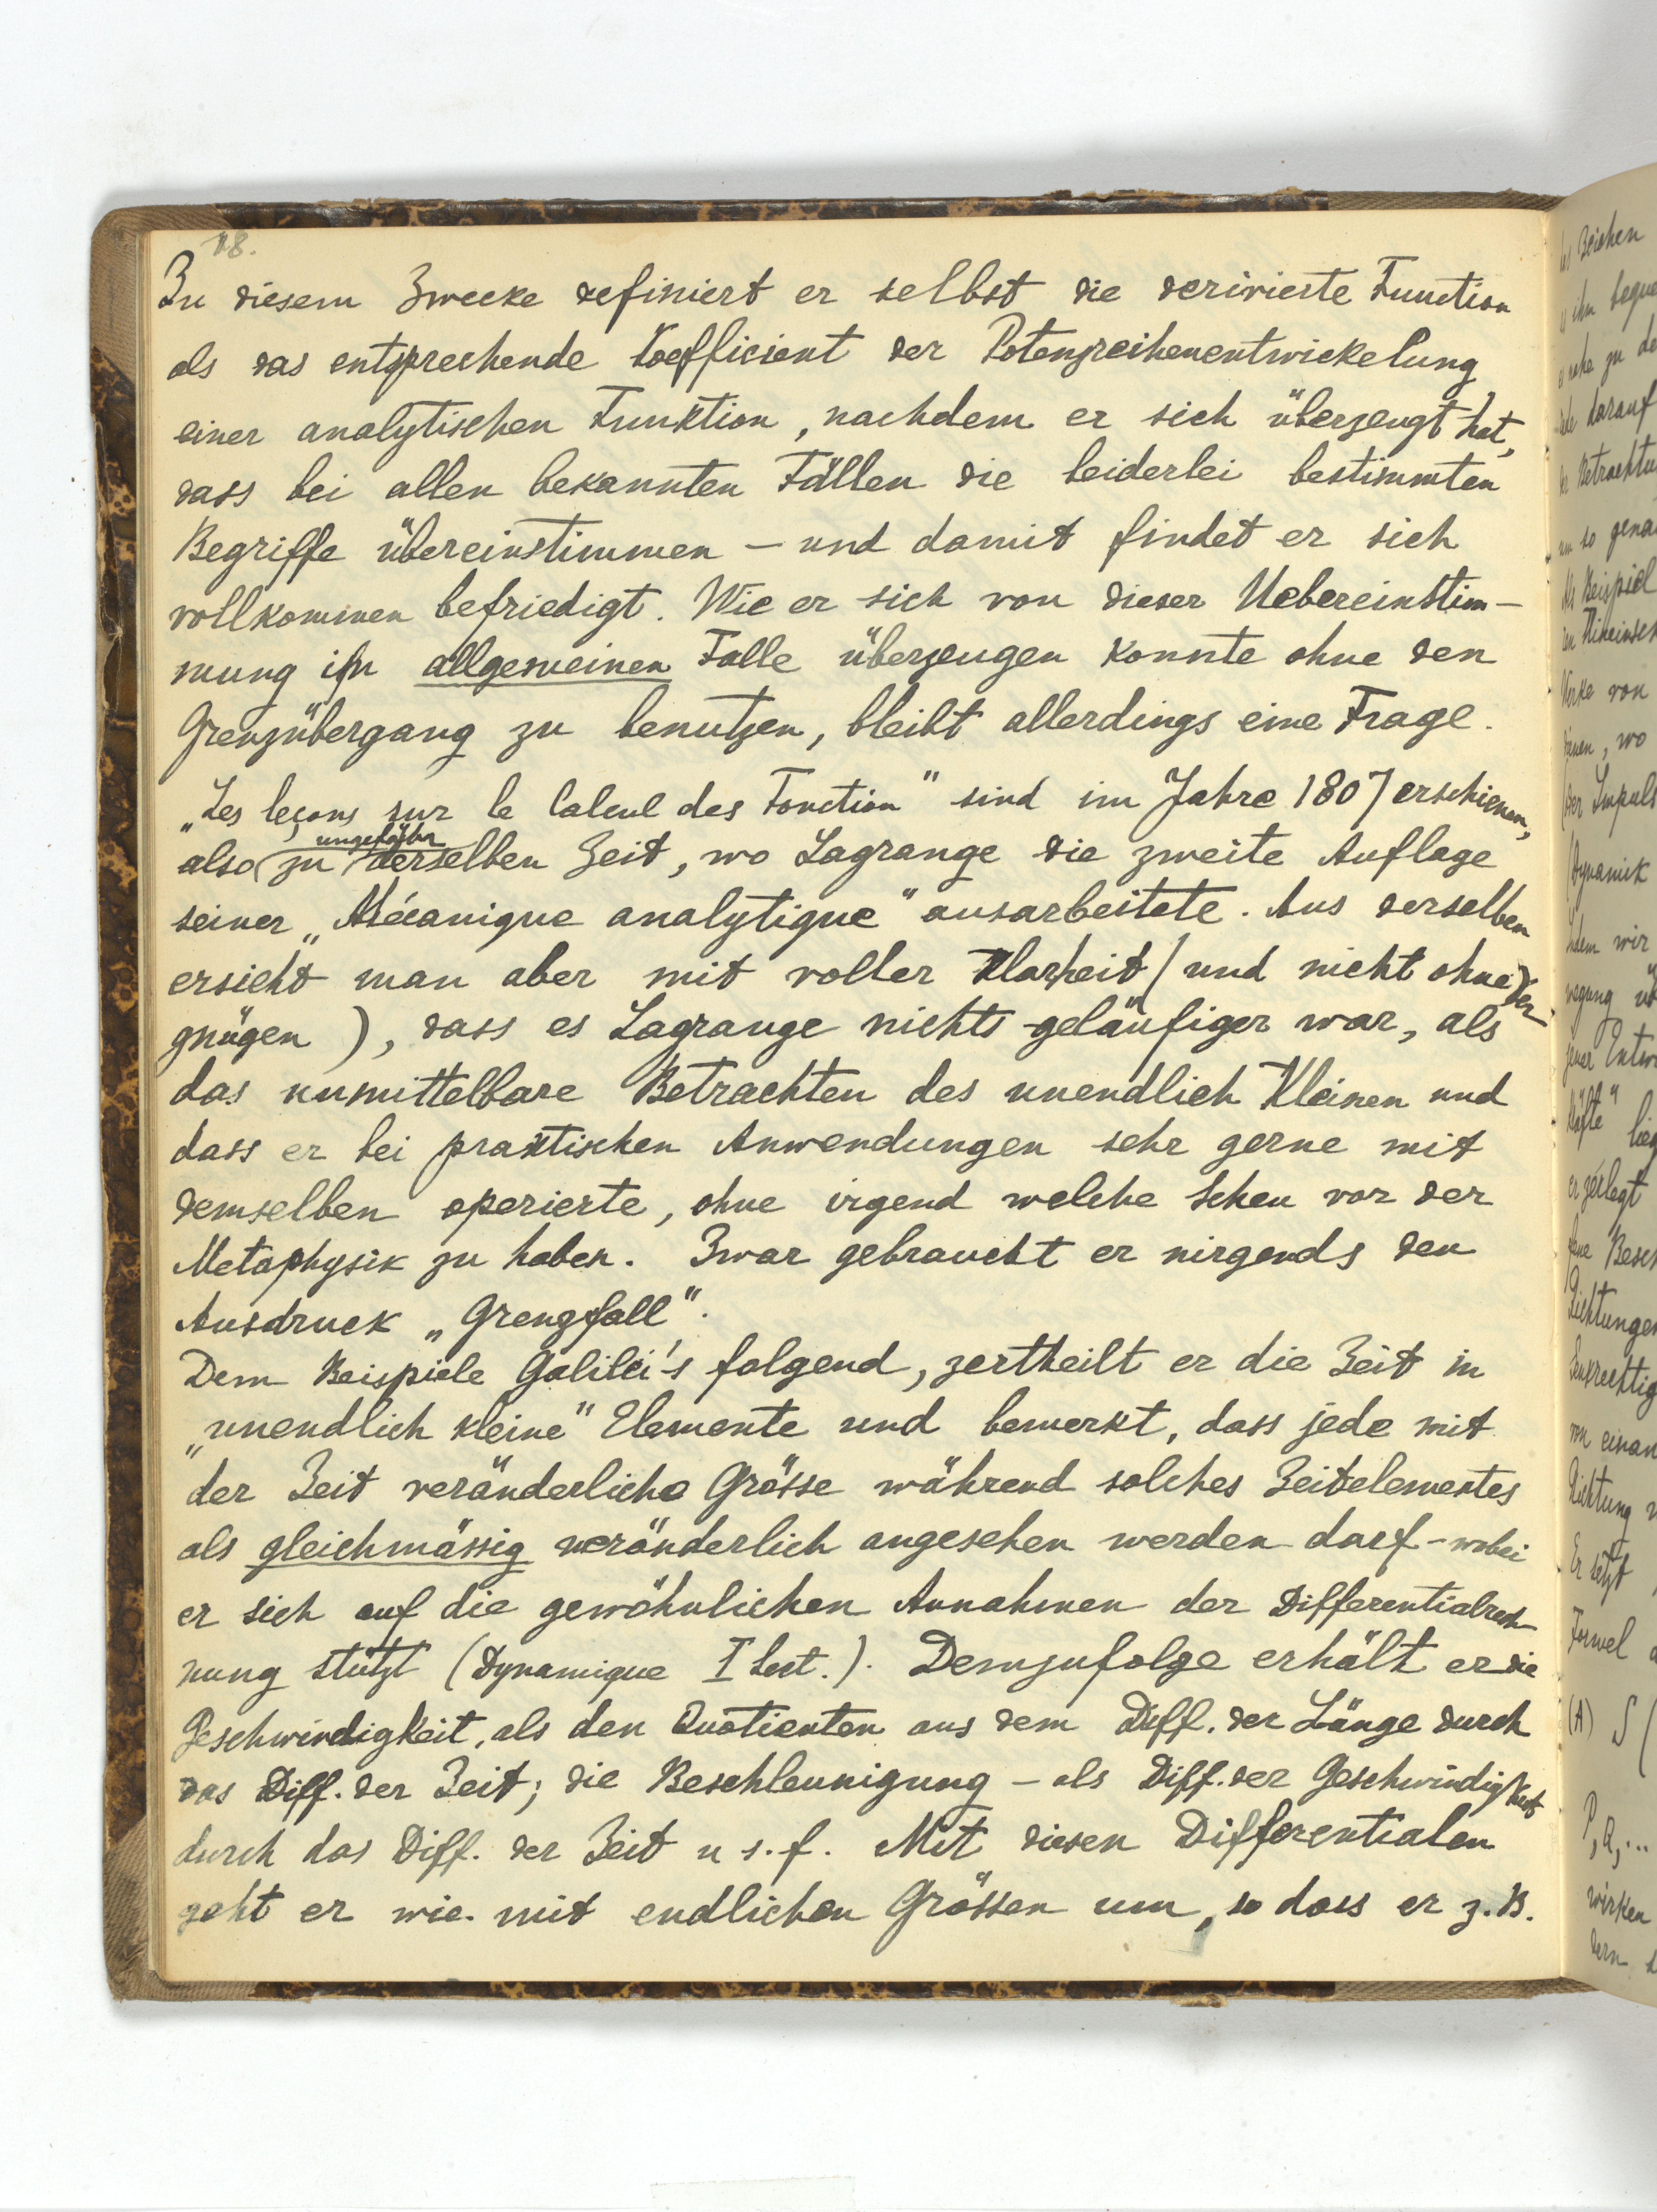 18.
Zu diesem Zwecke definiert er selbst die derivierte Function
als das entsprechende Koefficient der Potenzreihenentwickelung
einer analytischen Funktion, nachdem er sich überzeugt hat,
dass bei allen bekannten Fällen die beiderlei bestimmten
Begriffe übereinstimmen – und damit findet er sich
vollkommen befriedigt. Wie er sich von dieser Uebereinstim–
mung im allgemeinen Falle überzeugen konnte ohne den
Grenzübergang zu benutzen, bleibt allerdings eine Frage.
„Les leçons sur le Calcul des Fonction" sind im Jahre 1807 erschienen,
ungefähr
also zu derselben Zeit, wo Lagrange die zweite Auflage
seiner „Mécanique analytique" ausarbeitete. Aus derselben
ersieht man aber mit voller Klarheit (und nicht ohne Ver–
gnügen), dass es Lagrange nichts geläufiger war, als
das unmittelbare Betrachten des unendlich Kleinen und
dass er bei praktischen Anwendungen sehr gerne mit
demselben operierte, ohne irgend welche Scheu vor der
Metaphysik zu haben. Zwar gebraucht er nirgends den
Ausdruck „Grenzfall".
Dem Beispiele Galilei's folgend, zertheilt er die Zeit in
„unendlich kleine" Elemente und bemerkt, dass jede mit
der Zeit veränderliche Grösse während solches Zeitelementes
als gleichmässig veränderlich angesehen werden darf – wobei
er sich auf die gewöhnlichen Annahmen der Differentialrech–
nung stützt (Dynamique I Sect.). Demzufolge erhält er die
Geschwindigkeit, als den Quotienten aus dem Diff. der Länge durch
das Diff. der Zeit; die Beschleunigung – als Diff. der Geschwindigkeit
durch das Diff. der Zeit u s. f. Mit diesen Differentialen
geht er wie mit endlichen Grössen um, so dass er z. B.
Zeichen
darauf
so
Beispiel
Werke von
wo
Impuls
Dynamik
wir
er zerlegt
Richtungen
von einan
Richtung
Er setzt
Formel
(A) S (
P, Q, ...
wirken